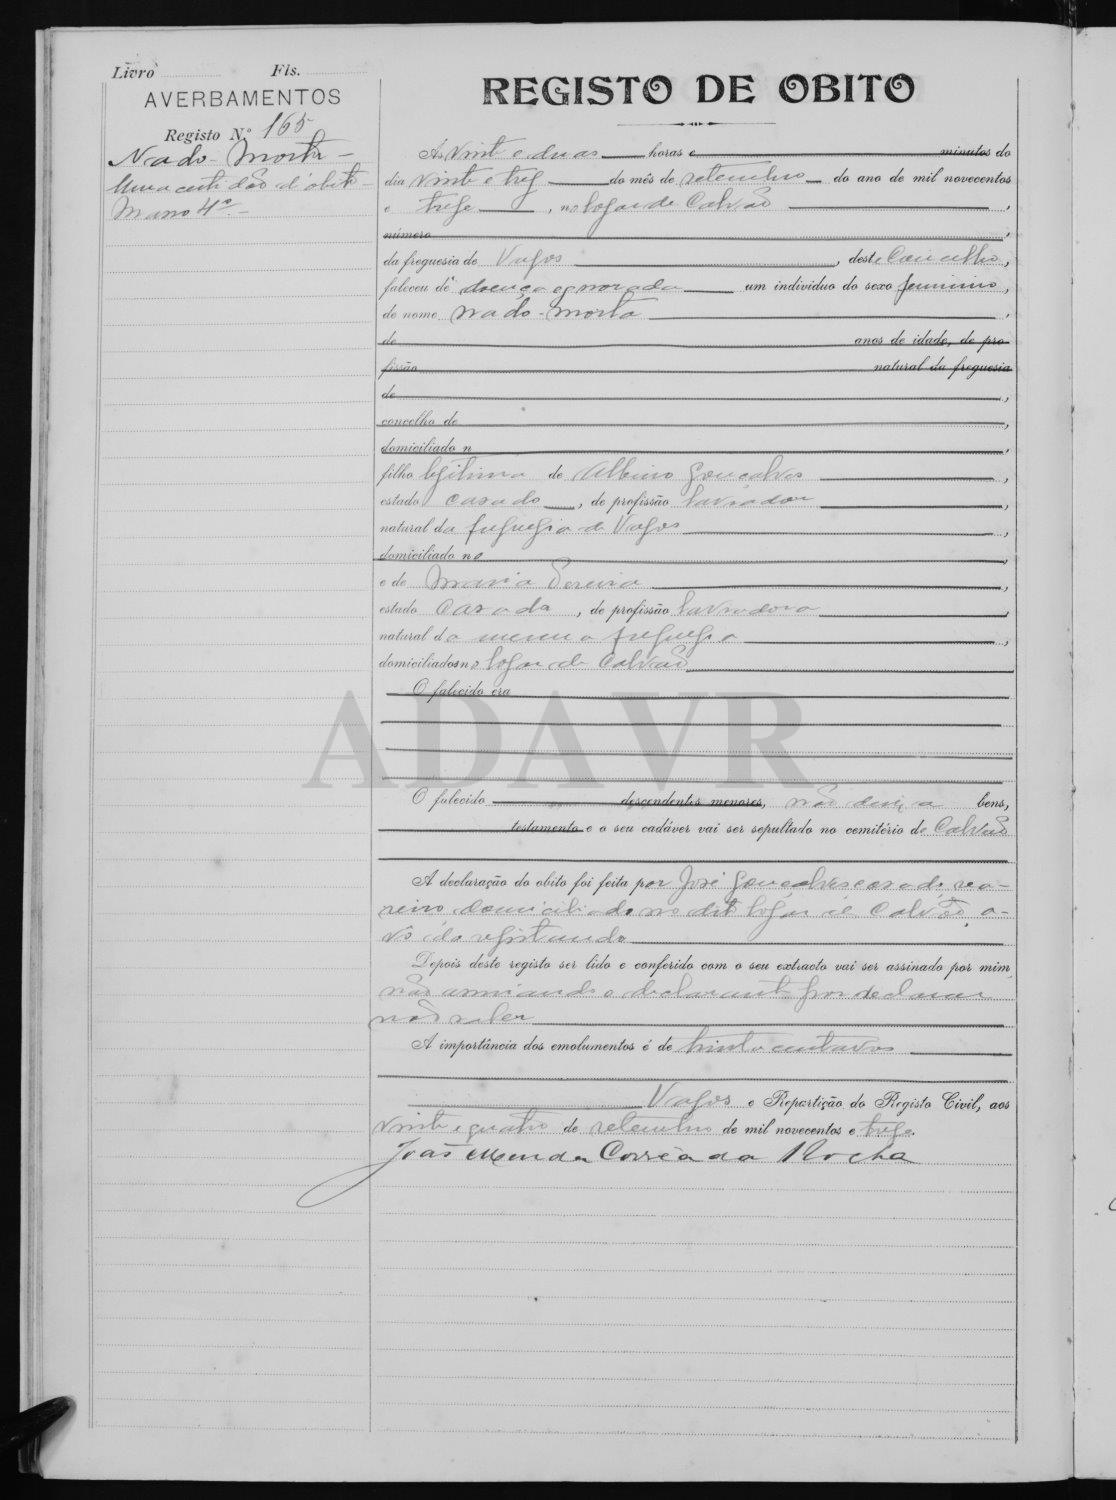 Livro Fls.
AVERBAMENTOS
Registo N.º 165
Nado-Morta -
Uma certidão d'obito -
Maço 4º. -
REGISTO DE OBITO
Ás vinte e duas horas e minutos do
dia vinte e tres do mês de setembro do ano de mil novecentos
e treze, no logar de Calvão,
número,
da freguesia de Vagos, deste Concelho,
faleceu de doença egnorada um individuo do sexo feminino,
de nome Nado-morta,
de anos de idade, de pro-
fissão natural da freguesia
de,
concelho de,
domiciliado n,
filho legitima de Albino Gonçalves,
estado casado, de profissão lavrador,
natural da freguesia de Vagos,
domiciliado no,
e de Maria Pereira,
estado casada, de profissão lavradora,
natural da mesma freguesia,
domiciliados no logar de Calvão
O falecido era
ADAVR
O falecido descendentes menores, não deixa bens,
testamento e o seu cadáver vai ser sepultado no cemitério de Calvão
A declaração do obito foi feita por José Gonçalves casado,
domiciliado no dito logar de Calvão, a-
vô da registanda
Depois deste registo ser lido e conferido com o seu extracto vai ser assinado por mim,
não assinando o declarante por declarar
não saber
A importância dos emolumentos é de trinta centavos
Vagos e Repartição do Registo Civil, aos
vinte e quatro de setembro de mil novecentos e treze.
João Mendes Corrêa da Rocha